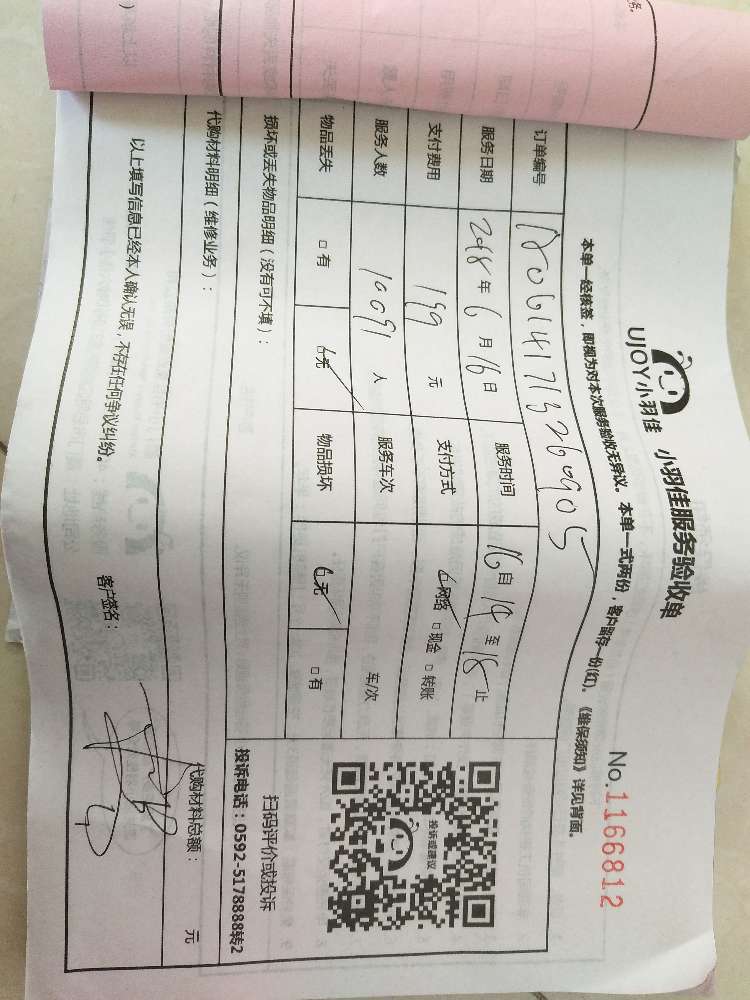 UJOY小羽佳 小羽佳服务验收单
No.1166812
本单一经核签，即视为对本次服务验收无异议。本单一式两份，客户留存一份(红)。《维保须知》详见背面。
订单编号
服务日期 2018年6月16日 服务时间 16自14至18止
支付费用 199 元 支付方式 网络 □现金 □转账
服务人数 10091 人 服务车次 车/次
物品丢失 □有 无 物品损坏 无 □有
损坏或丢失物品明细（没有可不填）：
投诉或建议
扫码评价或投诉
投诉电话：0592-5178888转2
代购材料明细（维修业务）： 代购材料总额： 元
以上填写信息已经本人确认无误，不存在任何争议纠纷。 客户签名：